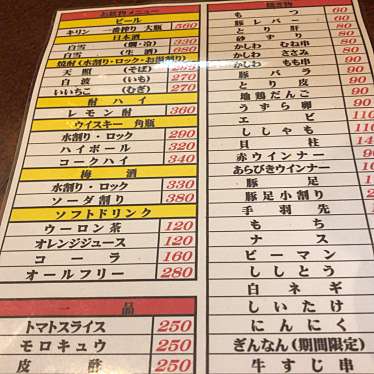 お飲物メニュー
ビール
キリン 一番搾り 大瓶 560
日本酒
白雪 (燗・冷) 330
白雪 (生酒) 680
焼酎(水割り・ロック・お湯割り)
天照 (そば)
白波 (いも) 270
いいちこ (むぎ) 270
酎ハイ
レモン酎 360
ウイスキー 角瓶
水割り・ロック 290
ハイボール 320
コークハイ 340
梅酒
水割り・ロック 330
ソーダ割り 380
ソフトドリンク
ウーロン茶 120
オレンジジュース 120
コーラ 160
オールフリー 280
一品
トマトスライス 250
モロキュウ 250
皮酢 250
もつ 60
豚レバー 80
とり肝 80
砂ずり 80
かしわ むね串 80
かしわ ささみ 80
かしわ もも串 80
豚バラ 90
とり皮 90
地鶏だんご 90
うずら卵 80
エビ
ししゃも
貝柱
赤ウインナー 90
あらびきウインナー
豚足
豚足小割り
手羽先
もち
ナス
ピーマン
ししとう
白ネギ
しいたけ
にんにく
ぎんなん(期間限定)
牛すじ串